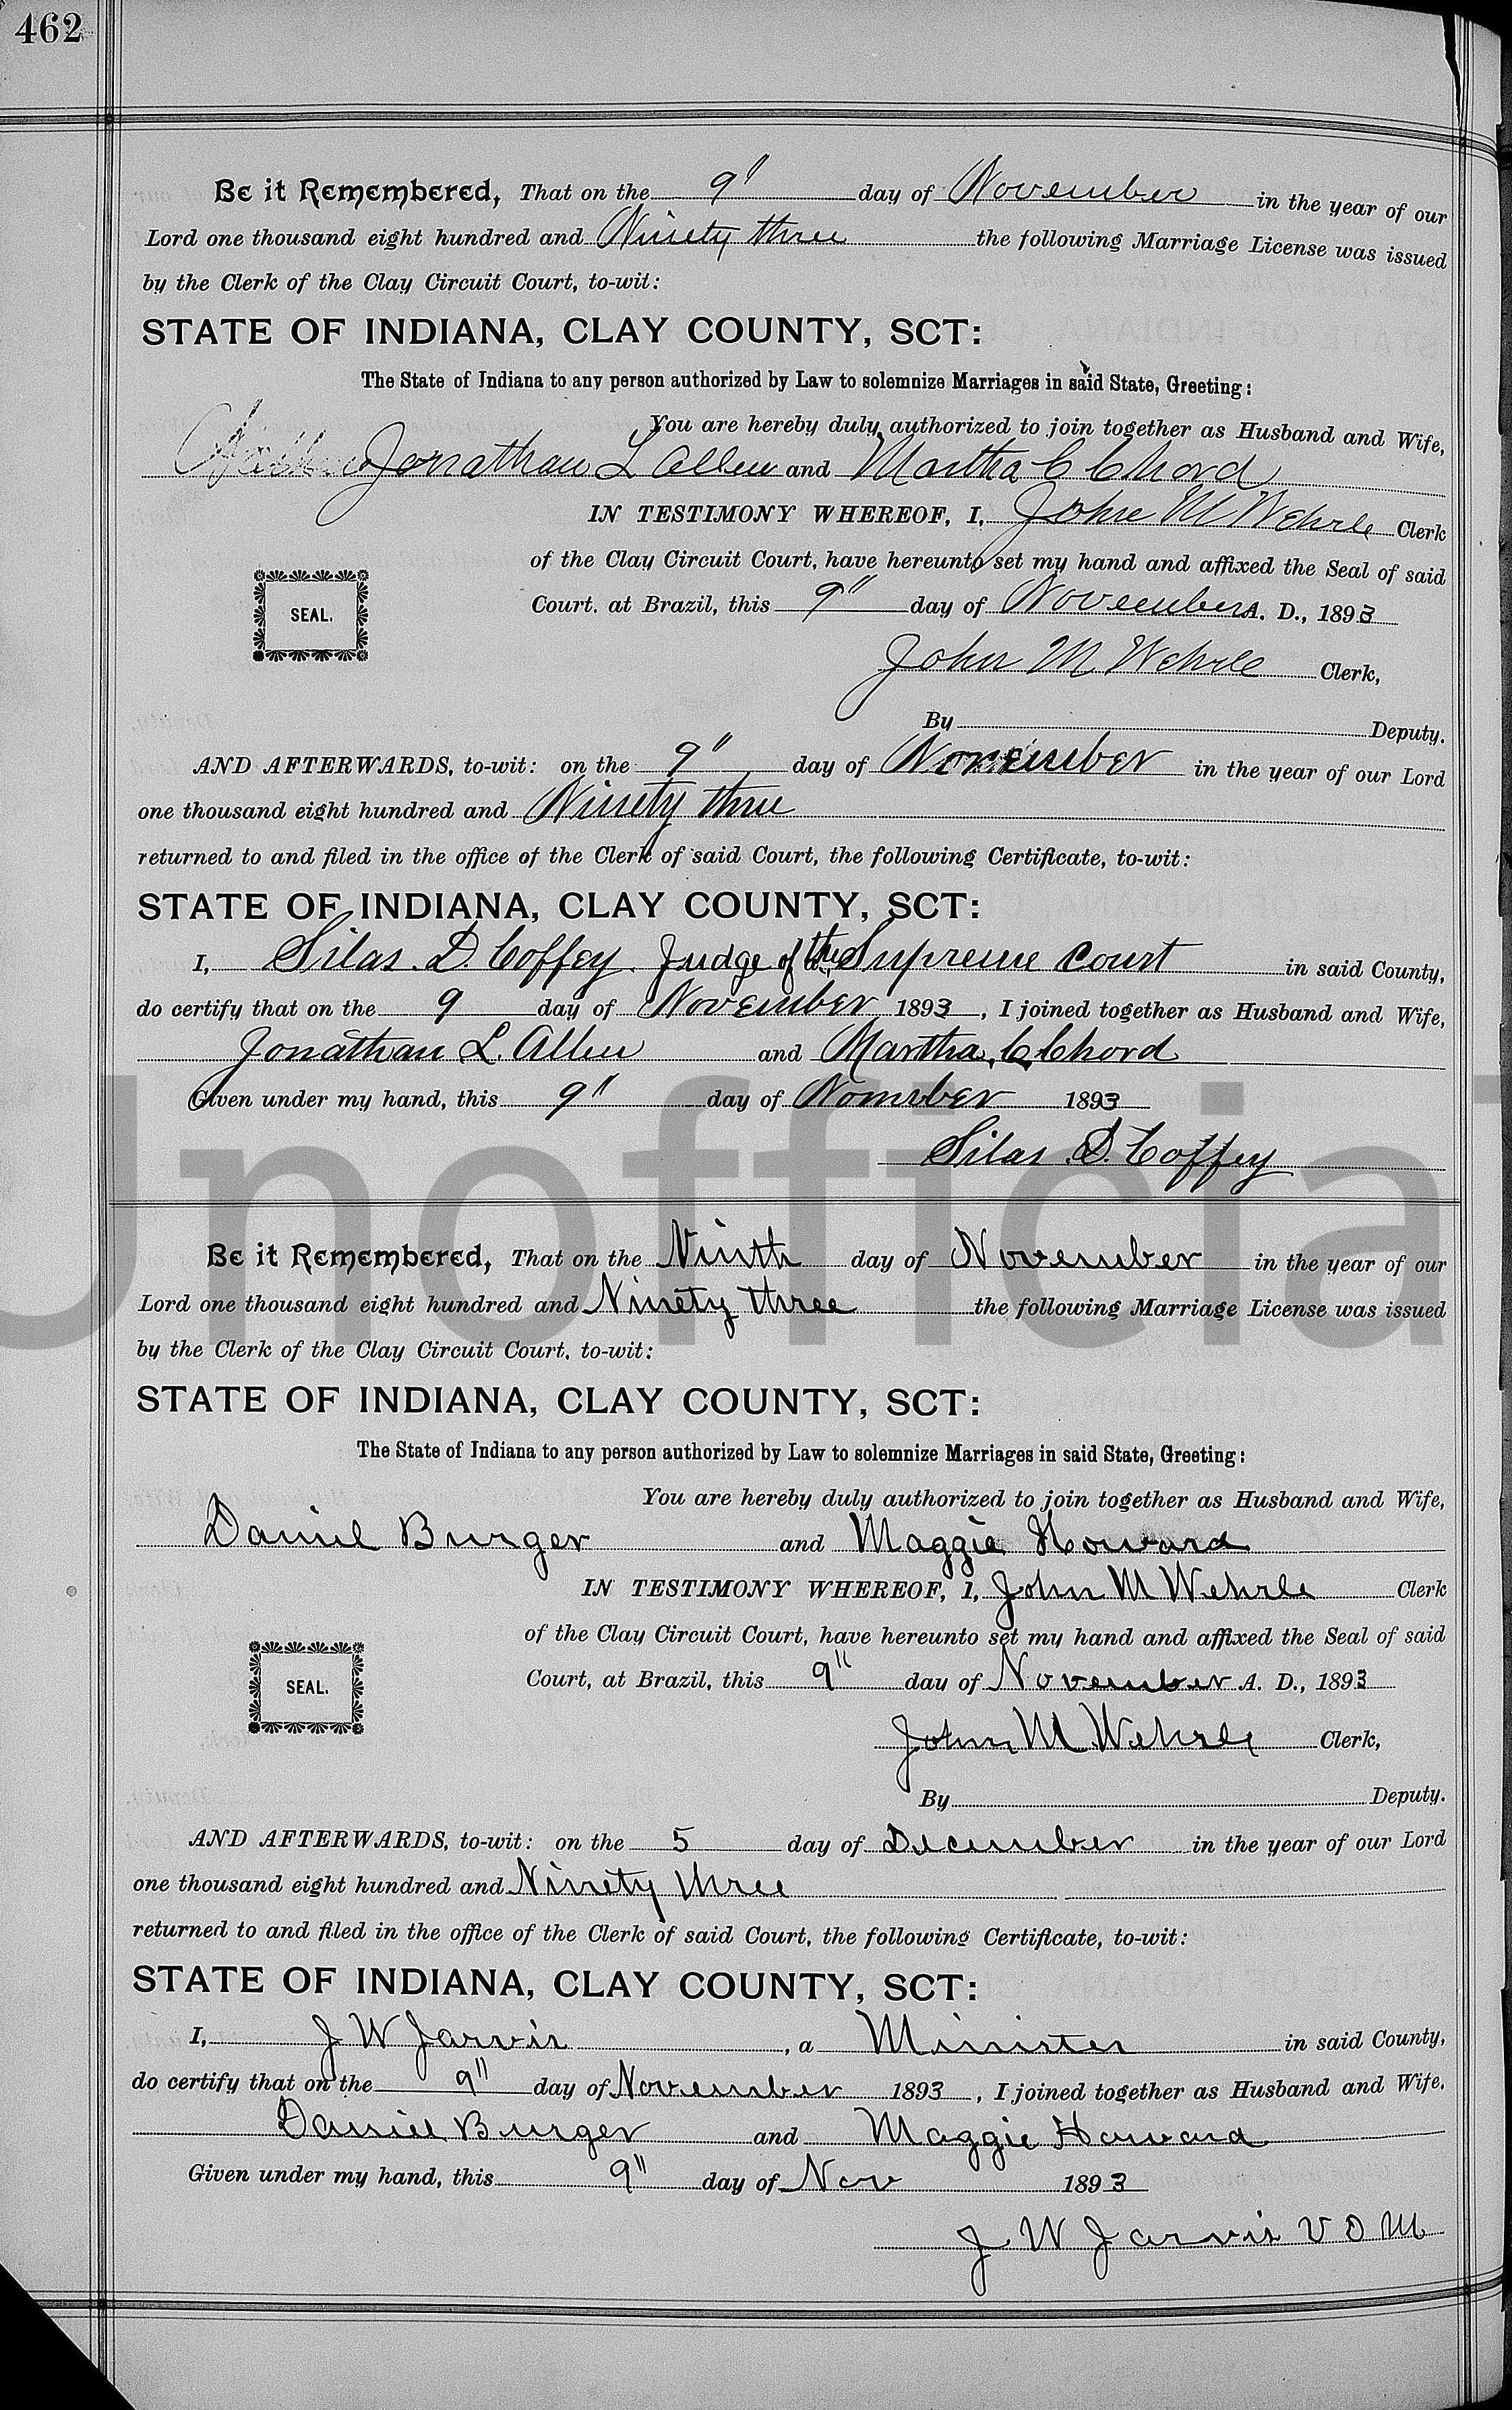 462
Be it Remembered, That on the 9" day of November in the year of our
Lord one thousand eight hundred and Ninety three the following Marriage License was issued
by the Clerk of the Clay Circuit Court, to-wit:
STATE OF INDIANA, CLAY COUNTY, SCT:
The State of Indiana to any person authorized by Law to solemnize Marriages in said State, Greeting:
You are hereby duly authorized to join together as Husband and Wife,
Jonathan L Allen and Martha C Chord
IN TESTIMONY WHEREOF, I, John M Wehrle Clerk
of the Clay Circuit Court, have hereunto set my hand and affixed the Seal of said
SEAL.
Court, at Brazil, this 9" day of November A. D., 1893
John M Wehrle Clerk,
By Deputy.
AND AFTERWARDS, to-wit: on the 9" day of November in the year of our Lord
one thousand eight hundred and Ninety three
returned to and filed in the office of the Clerk of said Court, the following Certificate, to-wit:
STATE OF INDIANA, CLAY COUNTY, SCT:
I, Silas. D. Coffey. Judge of the Supreme Court in said County,
do certify that on the 9 day of November 1893, I joined together as Husband and Wife,
Jonathan L. Allen and Martha, C Chord
Given under my hand, this 9" day of Nomeber 1893
Silas. D. Coffey
Unofficial
Be it Remembered, That on the Ninth day of November in the year of our
Lord one thousand eight hundred and Ninety three the following Marriage License was issued
by the Clerk of the Clay Circuit Court, to-wit:
STATE OF INDIANA, CLAY COUNTY, SCT:
The State of Indiana to any person authorized by Law to solemnize Marriages in said State, Greeting:
You are hereby duly authorized to join together as Husband and Wife,
Daniel Burger and Maggie Howard
IN TESTIMONY WHEREOF, I, John M Wehrle Clerk
of the Clay Circuit Court, have hereunto set my hand and affixed the Seal of said
SEAL.
Court, at Brazil, this 9" day of November A. D., 1893
John M Wehrle Clerk,
By Deputy.
AND AFTERWARDS, to-wit: on the 5 day of December in the year of our Lord
one thousand eight hundred and Ninety three
returned to and filed in the office of the Clerk of said Court, the following Certificate, to-wit:
STATE OF INDIANA, CLAY COUNTY, SCT:
I, J W Jarvis, a Minister in said County,
do certify that on the 9" day of November 1893, I joined together as Husband and Wife,
Daniel Burger and Maggie Howard
Given under my hand, this 9" day of Nov 1893
J W Jarvis V D M